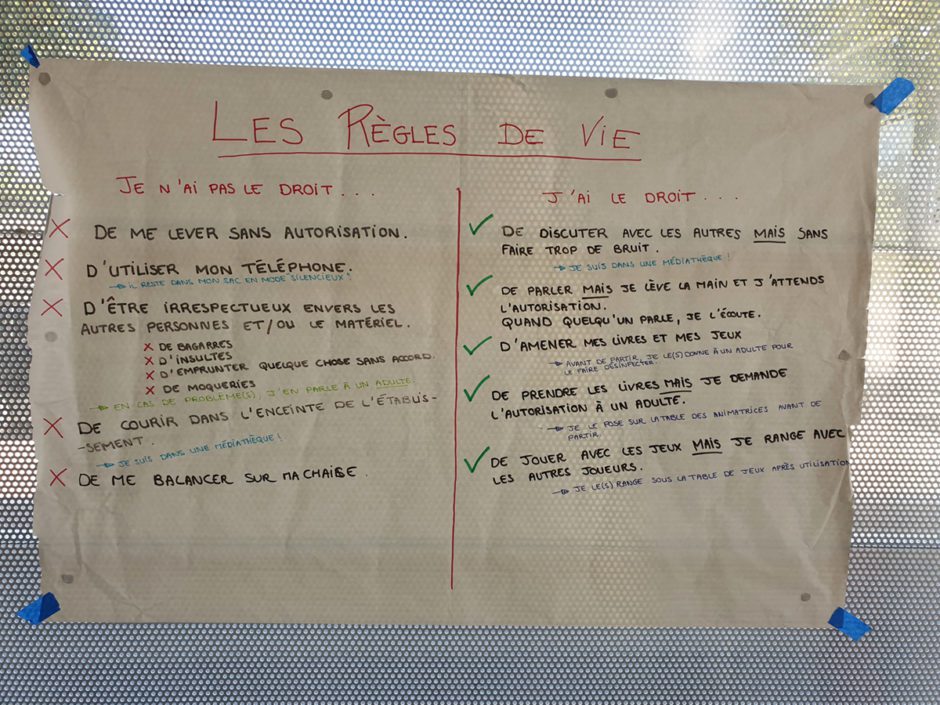 LES RÈGLES DE VIE
JE N'AI PAS LE DROIT...
DE ME LEVER SANS AUTORISATION.
D'UTILISER MON TÉLÉPHONE.
IL RESTE DANS MON SAC EN MODE SILENCIEUX!
D'ÊTRE IRRESPECTUEUX ENVERS LES
AUTRES PERSONNES ET/OU LE MATÉRIEL.
DE BAGARRES
D'INSULTES
D'EMPRUNTER QUELQUE CHOSE SANS ACCORD.
DE MOQUERIES
EN CAS DE PROBLÈME(S), J'EN PARLE À UN ADULTE.
DE COURIR DANS L'ENCEINTE DE L'ÉTABLIS-
-SEMENT.
JE SUIS DANS UNE MÉDIATHÈQUE!
DE ME BALANCER SUR MA CHAISE
J'AI LE DROIT...
DE DISCUTER AVEC LES AUTRES MAIS SANS
FAIRE TROP DE BRUIT.
JE SUIS DANS UNE MÉDIATHÈQUE!
DE PARLER MAIS JE LÈVE LA MAIN ET J'ATTENDS
L'AUTORISATION.
QUAND QUELQU'UN PARLE, JE L'ÉCOUTE.
D'AMENER MES LIVRES ET MES JEUX
AVANT DE PARTIR, JE LE(S) DONNE À UN ADULTE POUR
LE FAIRE DÉSINFECTER.
DE PRENDRE LES LIVRES MAIS JE DEMANDE
L'AUTORISATION À UN ADULTE.
JE LE POSE SUR LA TABLE DES ANIMATRICES AVANT DE
PARTIR.
DE JOUER AVEC LES JEUX MAIS JE RANGE AVEC
LES AUTRES JOUEURS.
JE LE(S) RANGE SOUS LA TABLE DE JEUX APRÈS UTILISATION